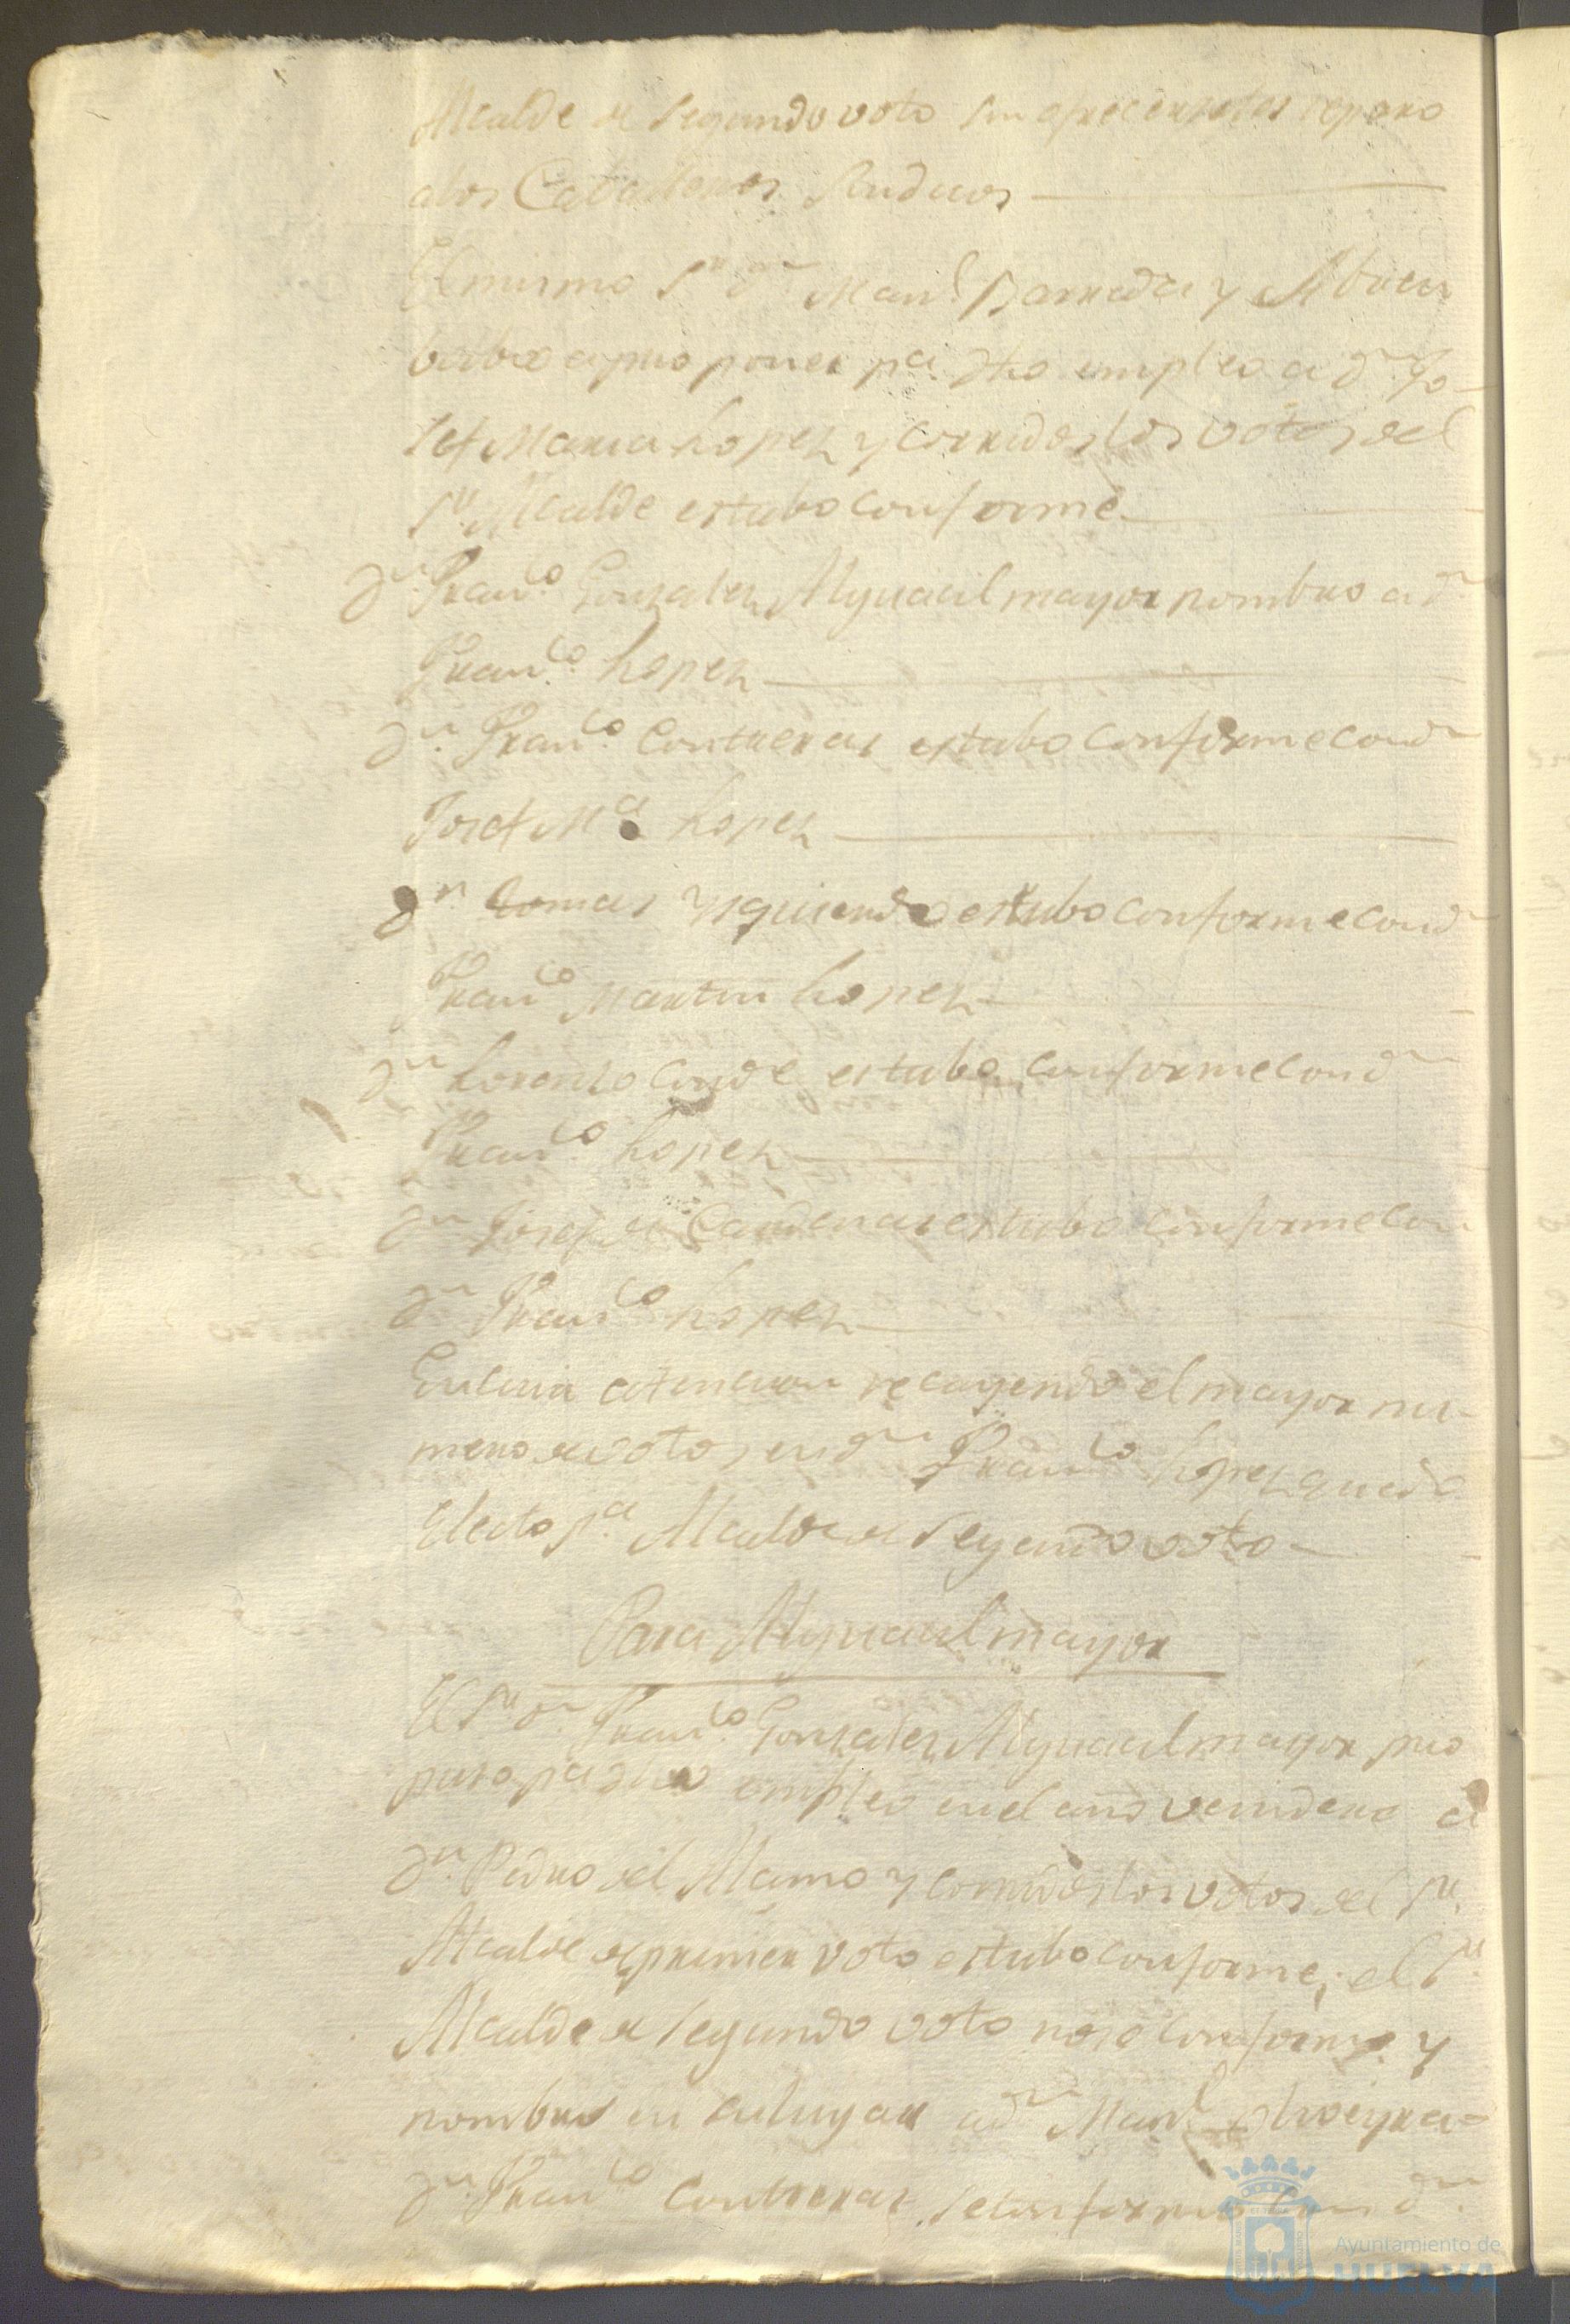 Alcalde de segundo voto sin ofrecerse reparo
alos Cavalleros Sindicos
El mismo Sr. dn. Manl. Barreda y
bolbio a proponer pa. dho empleo a dn. Jo-
sef Maria Lopez y corridos los votos del
Sr. Alcalde estubo conforme
dn. Franco. Gonzalez Alguacil mayor nombro a dn.
Franco. Lopez
dn. Franco. Contreras estubo conforme con dn.
Josef Ma. Lopez
dn. Tomas Ysquierdo estubo conforme con dn.
Franco. Martin Lopez
dn. Lorenzo Conde estubo conforme con dn.
Franco. Lopez
dn. Josef de Cardenas estubo conforme con
dn. Franco. Lopez
En cuia atencion recayendo el mayor nu-
mero de votos en dn. Franco. Lopez quedo
Electo pa. Alcalde de Segundo voto
Para Alguacil mayor
El Sr. dn. Franco. Gonzalez Alguacil mayor pro
puso pa dho empleo en el año venidero a
dn. Pedro del Alamo y corridos los votos del Sr.
Alcalde de primer voto estubo conforme; el Sr.
Alcalde de segundo voto no se conformo y
nombro en su lugar a dn. Manl.
dn. Franco. Contreras se conformo con dn.
Ayuntamiento de
HUELVA